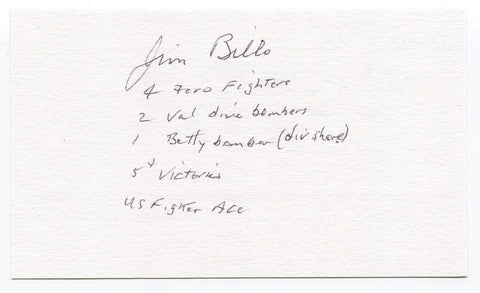 Jim Billo
4 Zero Fighters
2 Val dive bombers
1 Betty bomber (div share)
5 Victories
US Fighter Ace